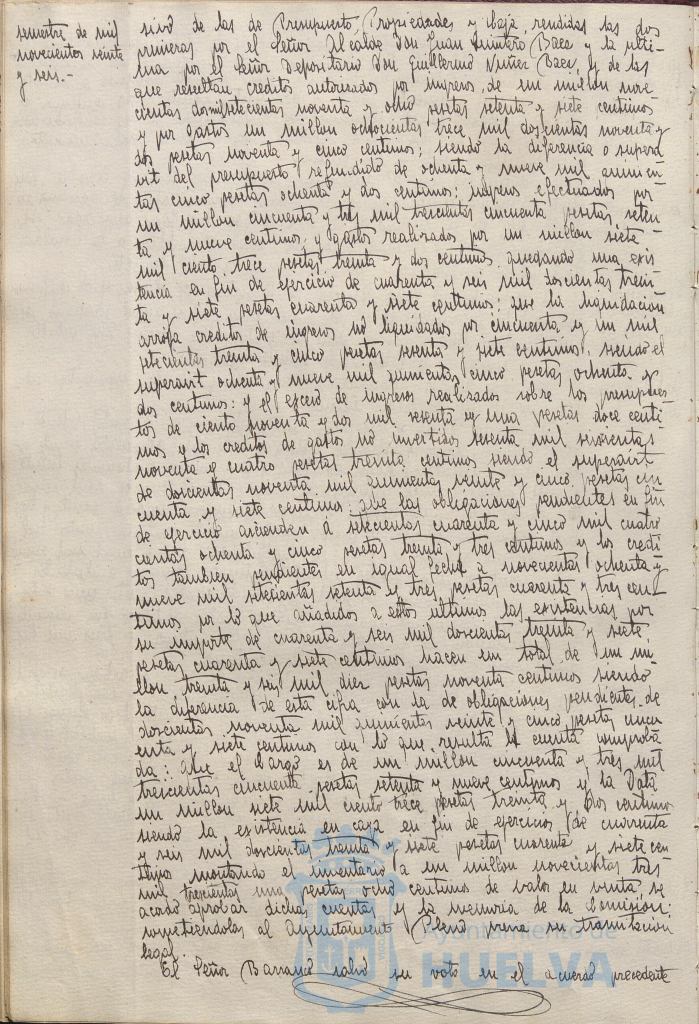 semestre de mil
novecientos veinte
y seis.-
sivo de las de Presupuesto, Propiedades y Caja, rendidas las dos
primeras por el Señor Alcalde Don Juan Quintero Baez y la ulti-
ma por el Señor Depositario Don Guillermo Nuñez Baez, y de las
que resultan creditos autorizados por ingresos de un millon nove-
cientas dos mil setecientas noventa y ocho pesetas setenta y siete centimos
y por gastos un millon ochocientas trece mil doscientas noventa y
dos pesetas noventa y cinco centimos; siendo la diferencia o supera-
vit del presupuesto refundido de ochenta y nueve mil quinien-
tas cinco pesetas ochenta y dos centimos; ingresos efectuados por
un millon cincuenta y tres mil trescientas cincuenta pesetas seten-
ta y nueve centimos y gastos realizados por un millon siete
mil ciento trece pesetas treinta y dos centimos quedando una exis-
tencia en fin de ejercicio de cuarenta y seis mil doscientas trein-
ta y siete pesetas cuarenta y siete centimos: que la liquidacion
arroja creditos de ingresos no liquidados por cincuenta y un mil
setecientas treinta y cinco pesetas setenta y siete centimos, siendo el
superavit ochenta y nueve mil quinientas cinco pesetas ochenta y
dos centimos: y el exceso de ingresos realizados sobre los presupues-
tos de ciento noventa y dos mil sesenta y una pesetas doce centi-
mos y los creditos de gastos no invertidos sesenta mil
noventa y cuatro pesetas treinta centimos siendo el superavit
de doscientas noventa mil quinientas veinte y cinco pesetas cin-
cuenta y siete centimos: que las obligaciones pendientes en fin
de ejercicio ascienden a setecientas cuarenta y cinco mil cuatro
cientas ochenta y cinco pesetas treinta y tres centimos y los credi-
tos tambien pendientes en igual fecha a novecientas ochenta y
nueve mil setecientas setenta y tres pesetas cuarenta y tres cen-
timos por lo que añadidos a estos ultimos las existencias por
su importe de cuarenta y seis mil doscientas treinta y siete
pesetas cuarenta y siete centimos hacen un total de un mi-
llon treinta y seis mil diez pesetas noventa centimos siendo
la diferencia de esta cifra con la de obligaciones pendientes de
doscientas noventa mil quinientas veinte y cinco pesetas cincu-
enta y siete centimos con lo que resulta la cuenta comproba-
da: que el Cargo es de un millon cincuenta y tres mil
trescientas cincuenta pesetas setenta y nueve centimos y la Data
un millon siete mil ciento trece pesetas treinta y dos centimos
siendo la existencia en caja en fin de ejercicios de cuarenta
y seis mil doscientas treinta y siete pesetas cuarenta y siete cen-
timos montando el inventario a un millon novecientas tres
mil trescientas una pesetas ocho centimos de valor en venta, se
acordo aprobar dichas cuentas y la memoria de la Comision;
sometiendolas al Ayuntamiento Pleno para su tramitacion
legal.
El Señor Barranco salvó su voto en el acuerdo precedente
Ayuntamiento de
HUELVA